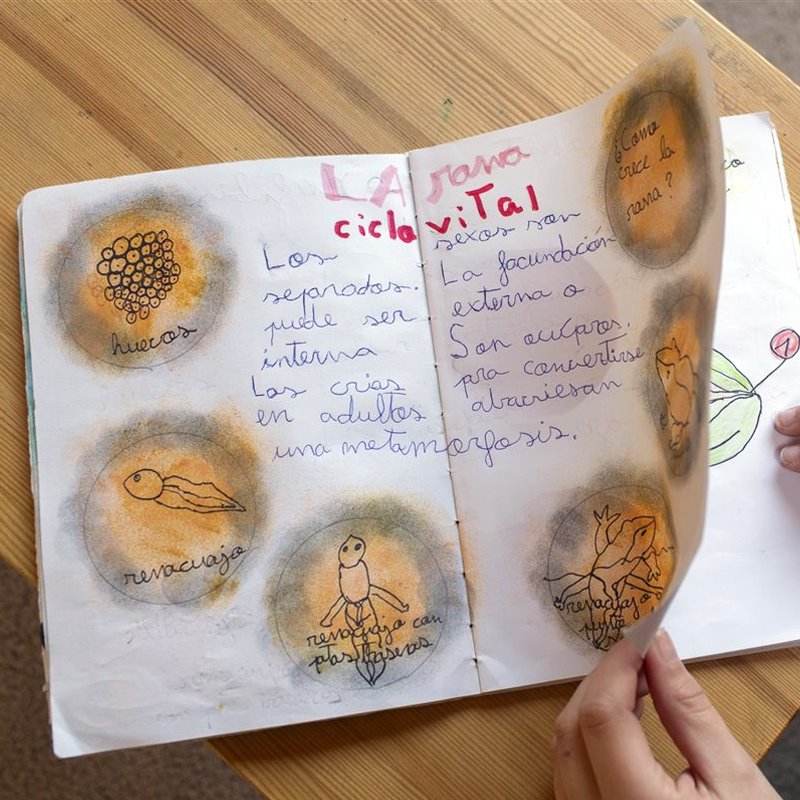 LA rana
ciclo viTal
Los sexos son
separados. La facundación
puede ser externa o
interna Son ovíparos.
Las crías pra convertirse
en adultos atraviesan
una metamorfosis.
huevos
renacuajo
renacuajo con
ptas traseras
renacuajo
¿Como
crece la
rana?
1